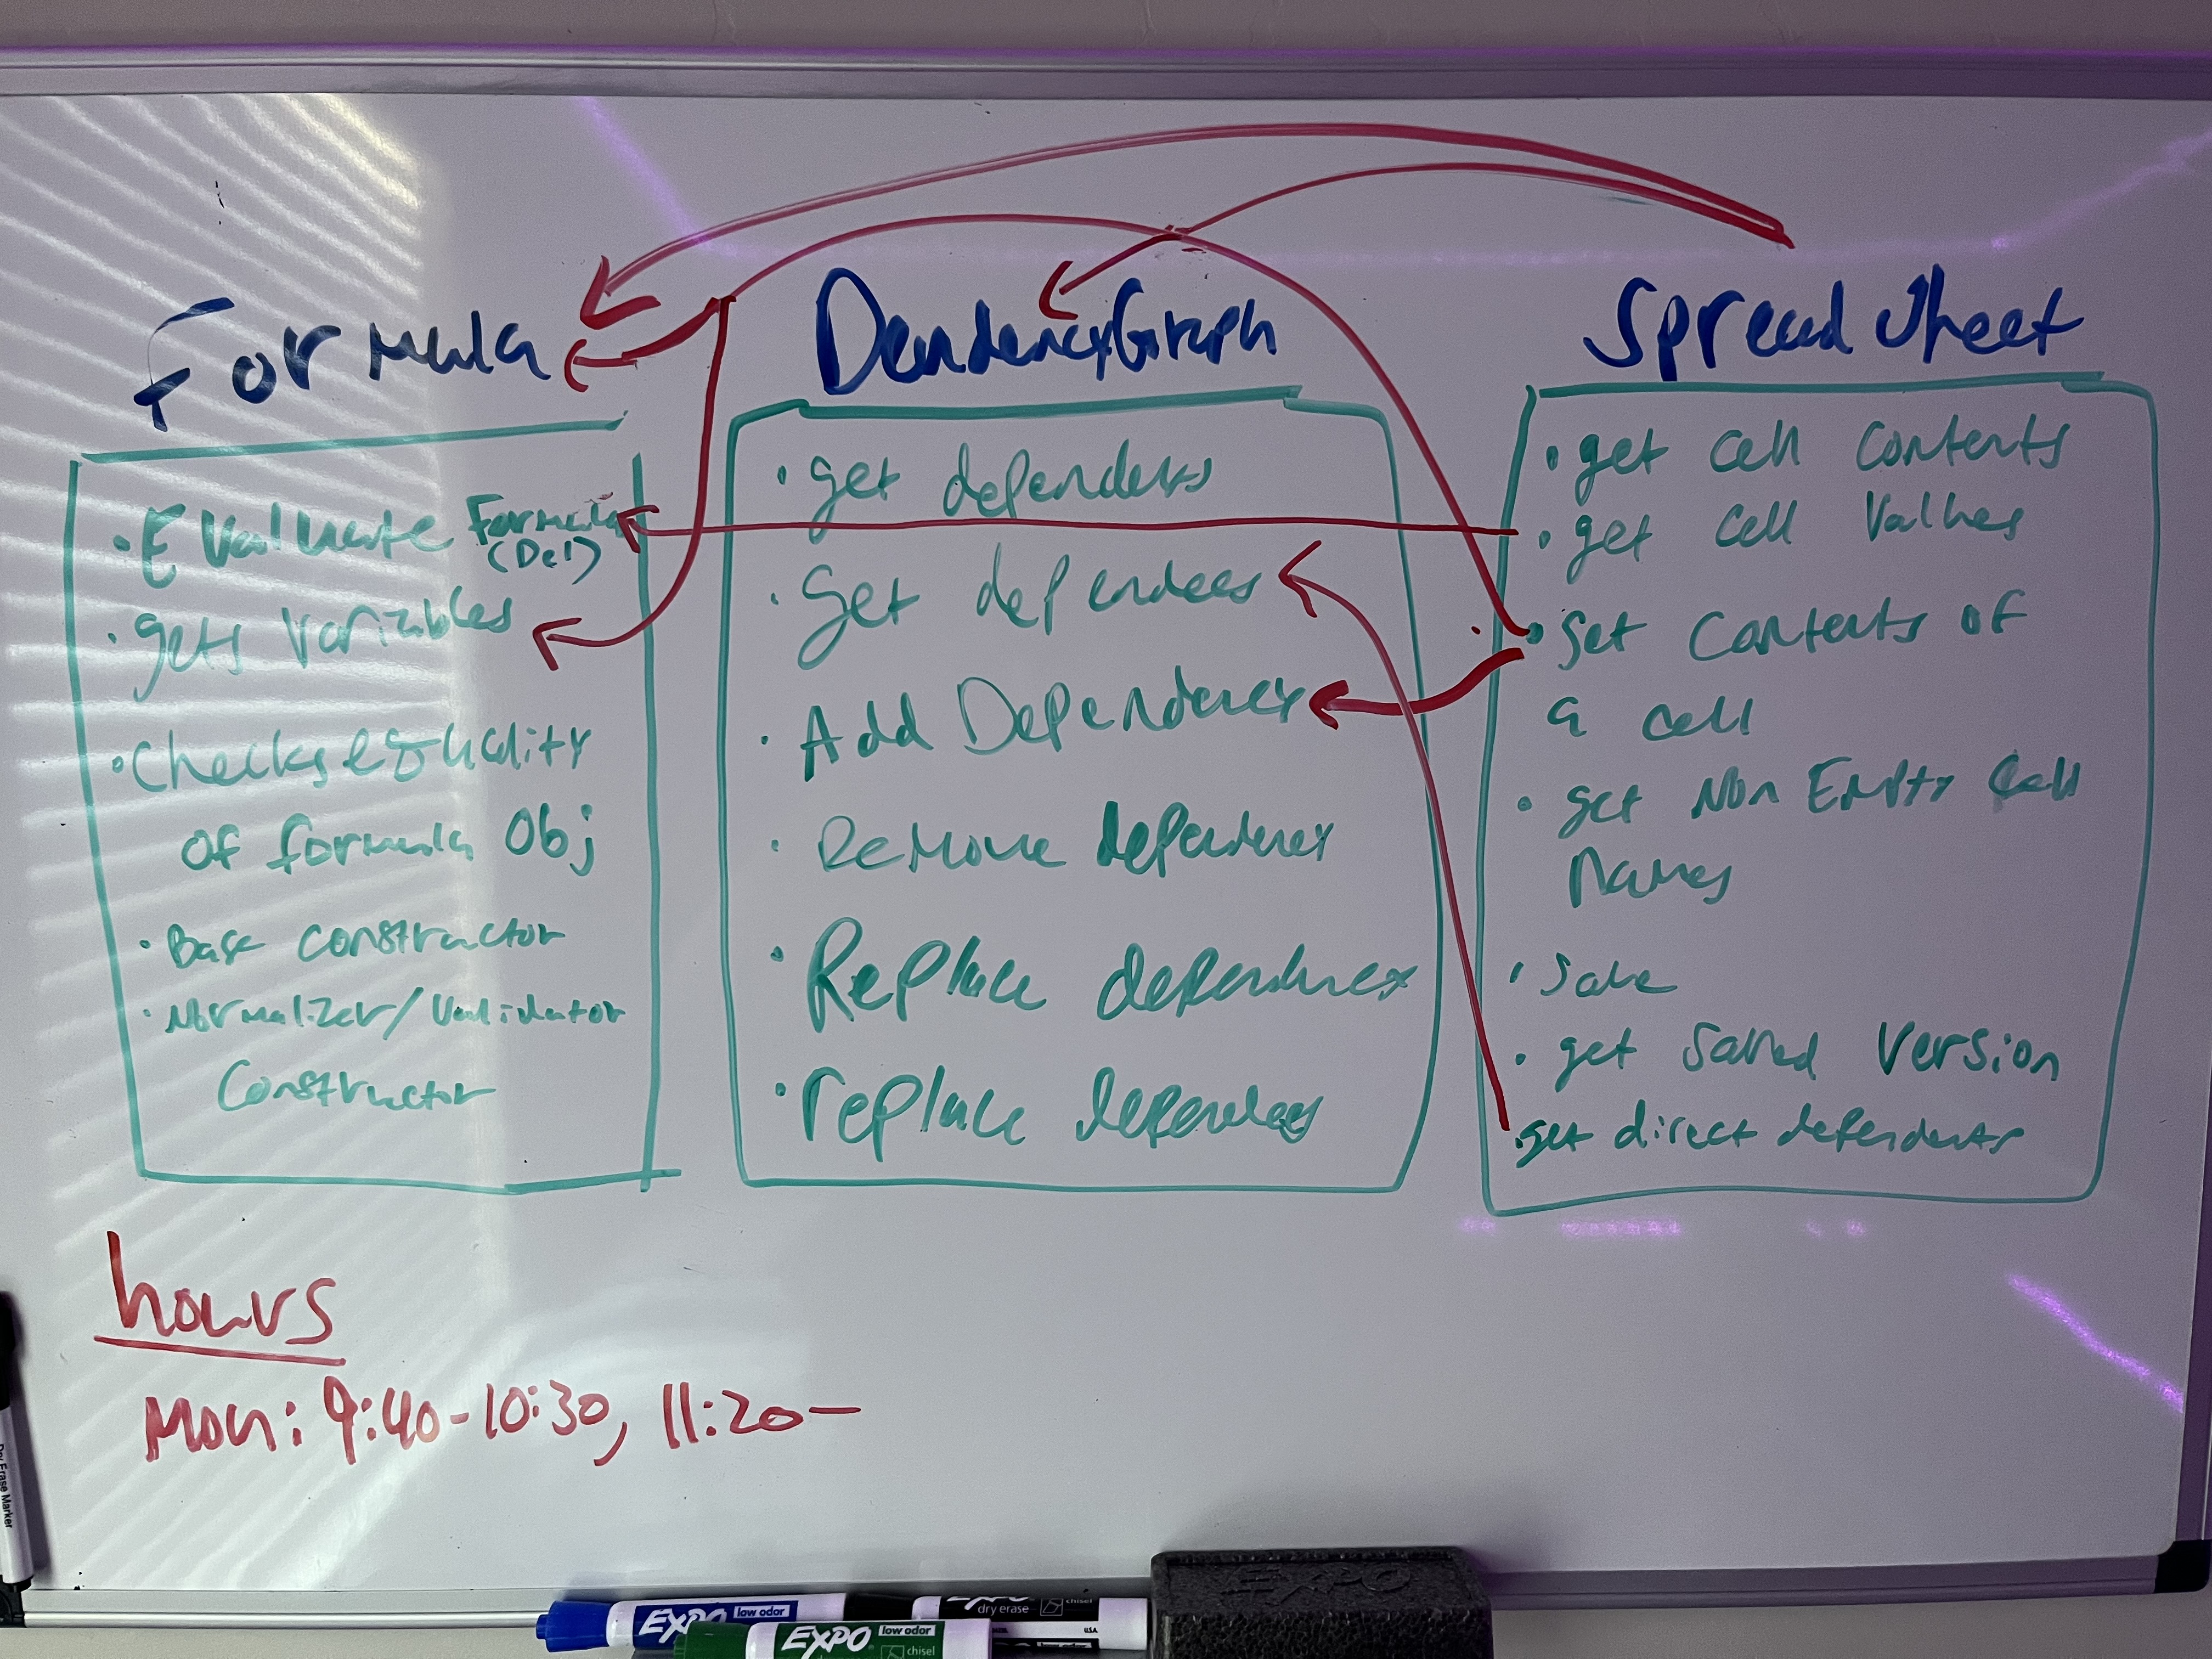 Formula
• Evaluate Formula
(Del)
• gets variables
• Checks equality
of formula Obj
• Base constructor
• Normalizer/Validator
Constructor
DendencyGraph
• get dependets
• Get dependees
• Add Dependency
• Remove dependency
• Replace dependency
• replace dependees
Spreadsheet
• get cell contents
• get cell Values
• Set Contents of
a cell
• get Non Empty Cell
Names
• Save
• get Saved Version
• get direct dependents
hours
Mon: 9:40-10:30, 11:20—
Dry Erase Marker
EXPO low odor
dry erase chisel
U.S.A.
EXPO low odor
chisel
EXPO